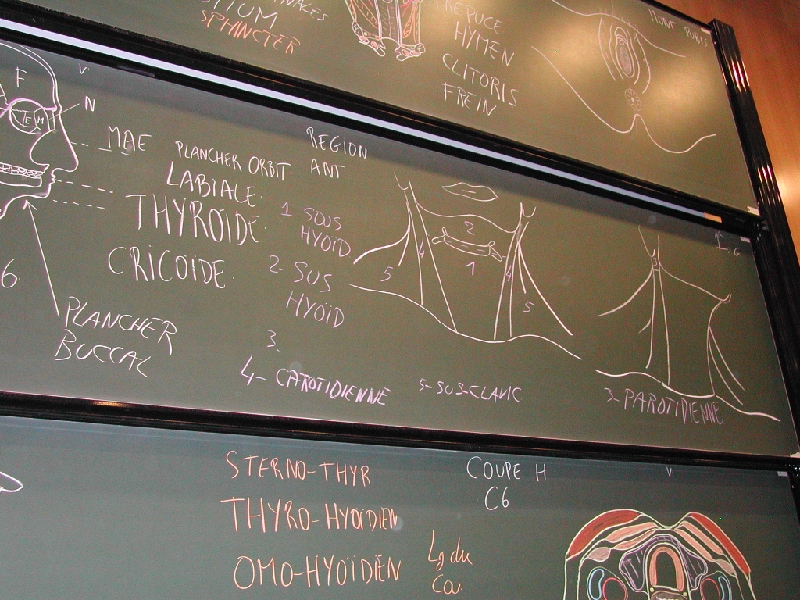 SPHINCTER
HYMEN
CLITORIS
FREIN
F
N
MAE
PLANCHER ORBIT
LABIALE
THYROÏDE
CRICOIDE
6
PLANCHER
BUCCAL
REGION
ANT
1 SOUS
HYOÏD
2 SUS
HYOÏD
3.
4- CAROTIDIENNE
2
1
4
5
5
3- PAROTIDIENNE
STERNO-THYR
THYRO-HYOÏDIEN
OMO-HYOÏDIEN
COUPE H
C6